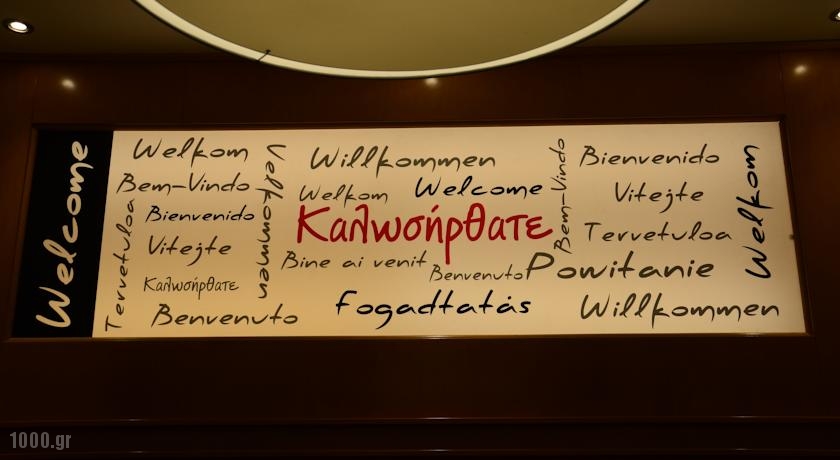 Welcome
Welkom
Bem-Vindo
Bienvenido
Tervetuloa
Vitejte
Καλωσήρθατε
Benvenuto
Velkommen
Willkommen
Welkom
Welcome
Καλωσήρθατε
Bine ai venit
Benvenuto
Fogadtatás
Bem-Vindo
Bienvenido
Vitejte
Tervetuloa
Powitanie
Willkommen
Welkom
1000.gr